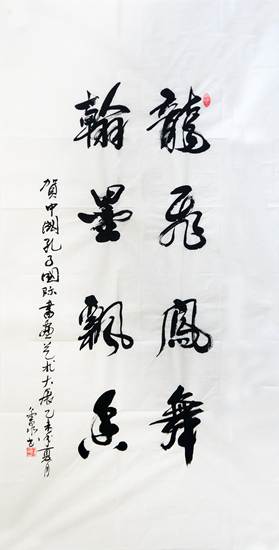 龍飛鳳舞
翰墨飄香
賀中國孔子國际書画艺术大展乙未年夏月